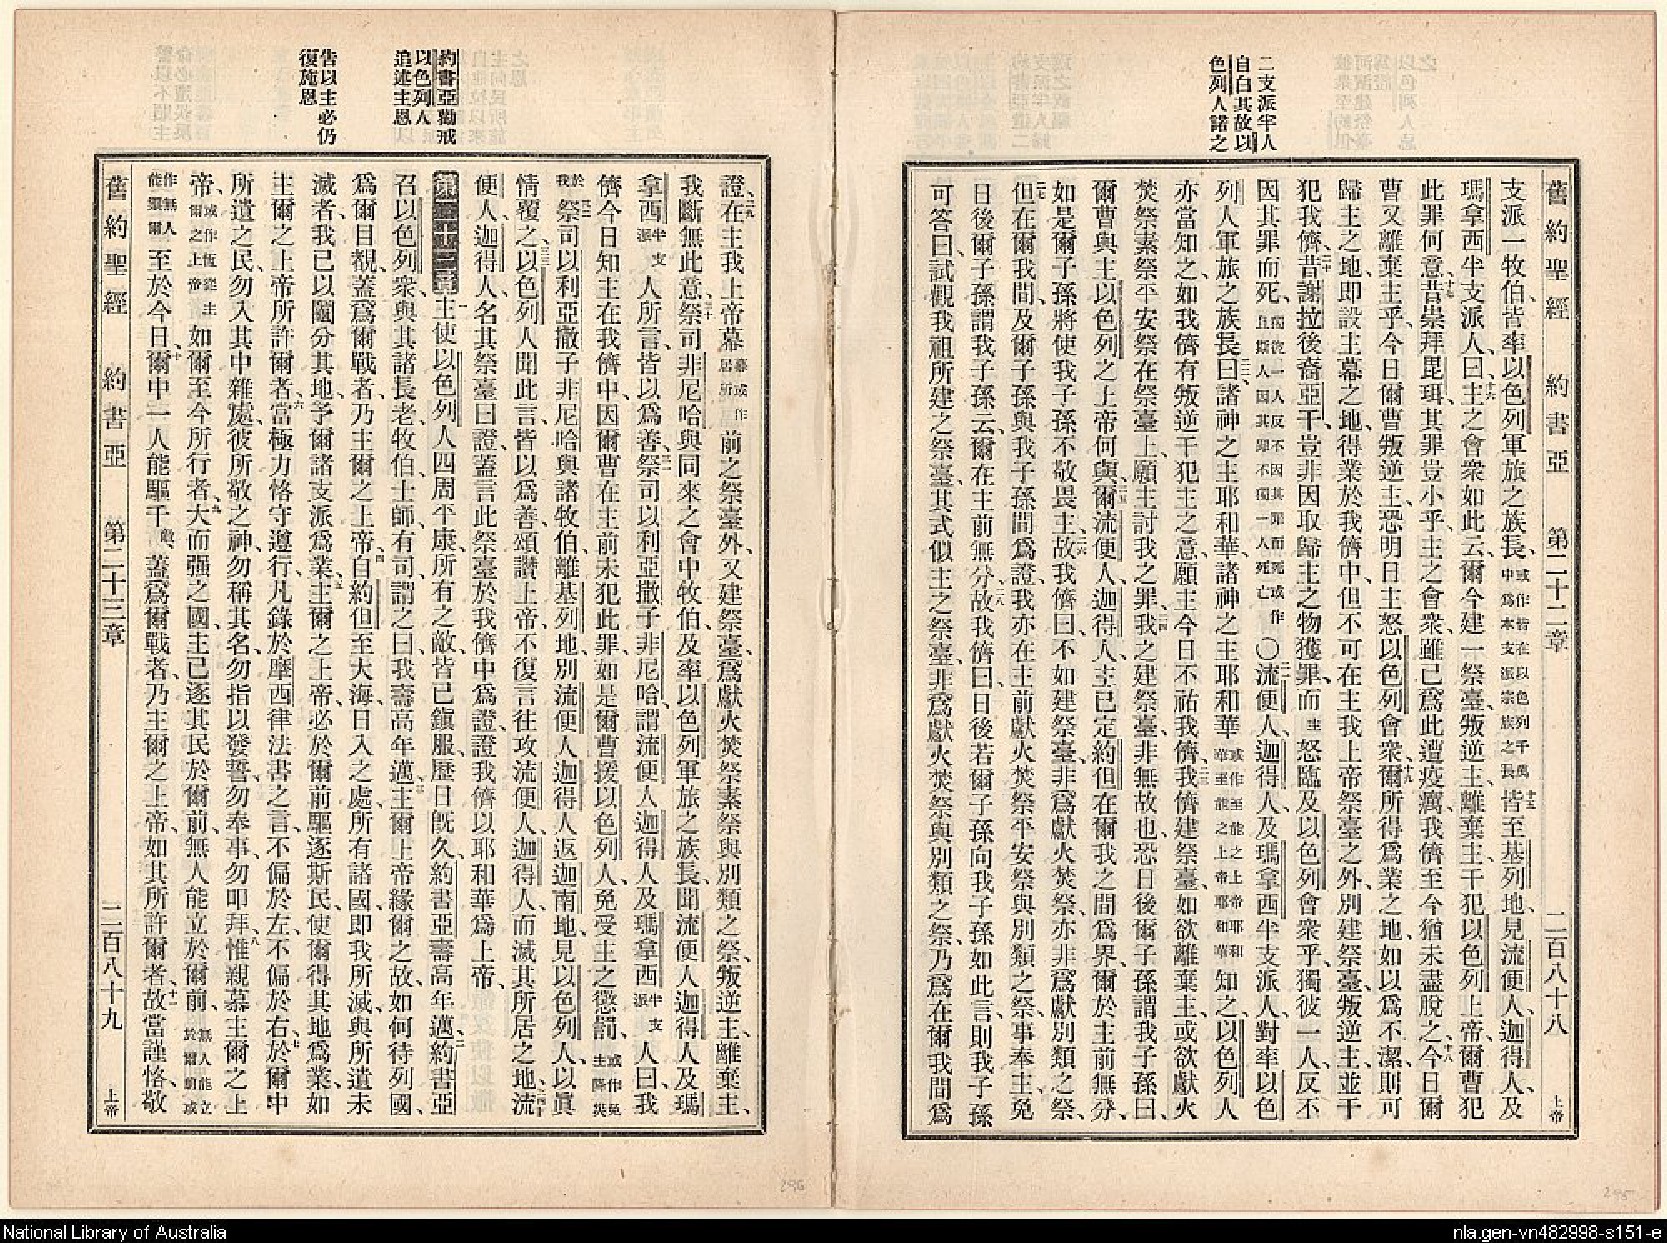 二支派半人
自白其故以
色列人諾之
舊約聖經 約書亞 第二十二章 二百八十八 上帝
支派一牧伯、皆率以色列軍旅之族長、或作皆在以色列千萬中為本支派宗族之長皆至基列地、見流便人、迦得人、及
瑪拿西半支派人、曰、主之會眾如此云、爾今建一祭臺、叛逆主、離棄主、干犯以色列上帝、爾曹犯
此罪何意、昔崇拜毘珥、其罪豈小乎、主之會眾、雖已為此遭疫癘、我儕至今猶未盡脫之、今日爾
曹又離棄主乎、今日爾曹叛逆主、恐明日主怒以色列會眾、爾所得為業之地、如以為不潔、則可
歸主之地、即設主幕之地、得業於我儕中、但不可在主我上帝祭臺之外、別建祭臺、叛逆主、並干
犯我儕、昔謝拉後裔亞干、豈非因取歸主之物獲罪、而主怒臨及以色列會眾乎、獨彼一人、反不
因其罪而死、
列人軍旅之族長曰、諸神之主耶和華、諸神之主耶和華知之、以色列人
亦當知之、如我儕有叛逆干犯主之意、願主今日不祐我儕、我儕建祭臺、如欲離棄主、或欲獻火
焚祭素祭平安祭在祭臺上、願主討我之罪、我之建祭臺、非無故也、恐日後爾子孫謂我子孫曰、
爾曹與主以色列之上帝何與、爾流便人、迦得人、主已定約但在爾我之間為界、爾於主前無分、
如是、爾子孫將使我子孫不敬畏主、故我儕曰、不如建祭臺、非為獻火焚祭、亦非為獻別類之祭、
但在爾我間、及爾子孫與我子孫間為證、我亦在主前獻火焚祭平安祭與別類之祭、事奉主、免
日後爾子孫謂我子孫云、爾在主前無分、故我儕曰、日後若爾子孫向我子孫如此言、則我子孫
可答曰、試觀我祖所建之祭臺、其式似主之祭臺、非為獻火焚祭與別類之祭、乃為在爾我間為
約書亞勸戒
以色列人
追述主恩
告以主必仍
復施恩
證、在主我上帝幕幕或作居所前之祭臺外、又建祭臺、為獻火焚祭素祭與別類之祭、叛逆主、離棄主、
我斷無此意、祭司非尼哈、與同來之會中牧伯、及率以色列軍旅之族長、聞流便人迦得人及瑪
拿西半支派人所言、皆以為善、祭司以利亞撒子非尼哈、謂流便人迦得人及瑪拿西半支派人曰、我
儕今日知主在我儕中、因爾曹在主前未犯此罪、如是、爾曹援以色列人、免受主之懲罰、
於我祭司以利亞撒子非尼哈與諸牧伯、離基列地、別流便人迦得人、返迦南地、見以色列人、以眞
情覆之、以色列人聞此言、皆以為善、頌讚上帝、不復言往攻流便人迦得人、而滅其所居之地、流
便人迦得人、名其祭臺曰證、蓋言此祭臺於我儕中為證、證我儕以耶和華為上帝、
第二十三章 主使以色列人四周平康、所有之敵皆已鎮服、歷日既久、約書亞壽高年邁、約書亞
召以色列眾與其諸長老、牧伯、士師、有司、謂之曰、我壽高年邁、主爾上帝、緣爾之故、如何待列國、
為爾目覩、蓋為爾戰者、乃主爾之上帝、自約但至大海日入之處、所有諸國、即我所滅與所遺未
滅者、我已以鬮分其地、予爾諸支派為業、主爾之上帝、必於爾前驅逐斯民、使爾得其地為業、如
主爾之上帝所許爾者、當極力恪守遵行凡錄於摩西律法書之言、不偏於左、不偏於右、於爾中
所遺之民、勿入其中雜處、彼所敬之神、勿稱其名、勿指以發誓、勿奉事、勿叩拜、惟親慕主爾之上
帝、或作恆從主爾之上帝如爾至今所行者、大而強之國、主已逐其民於爾前、無人能立於爾前、無人能立於爾前或
作無人能敵爾至於今日、爾中一人、能驅千敵、蓋為爾戰者、乃主爾之上帝、如其所許爾者、故當謹恪、敬
舊約聖經 約書亞 第二十三章 二百八十九 上帝
296
295
National Library of Australia
nla.gen-vn482998-s151-e